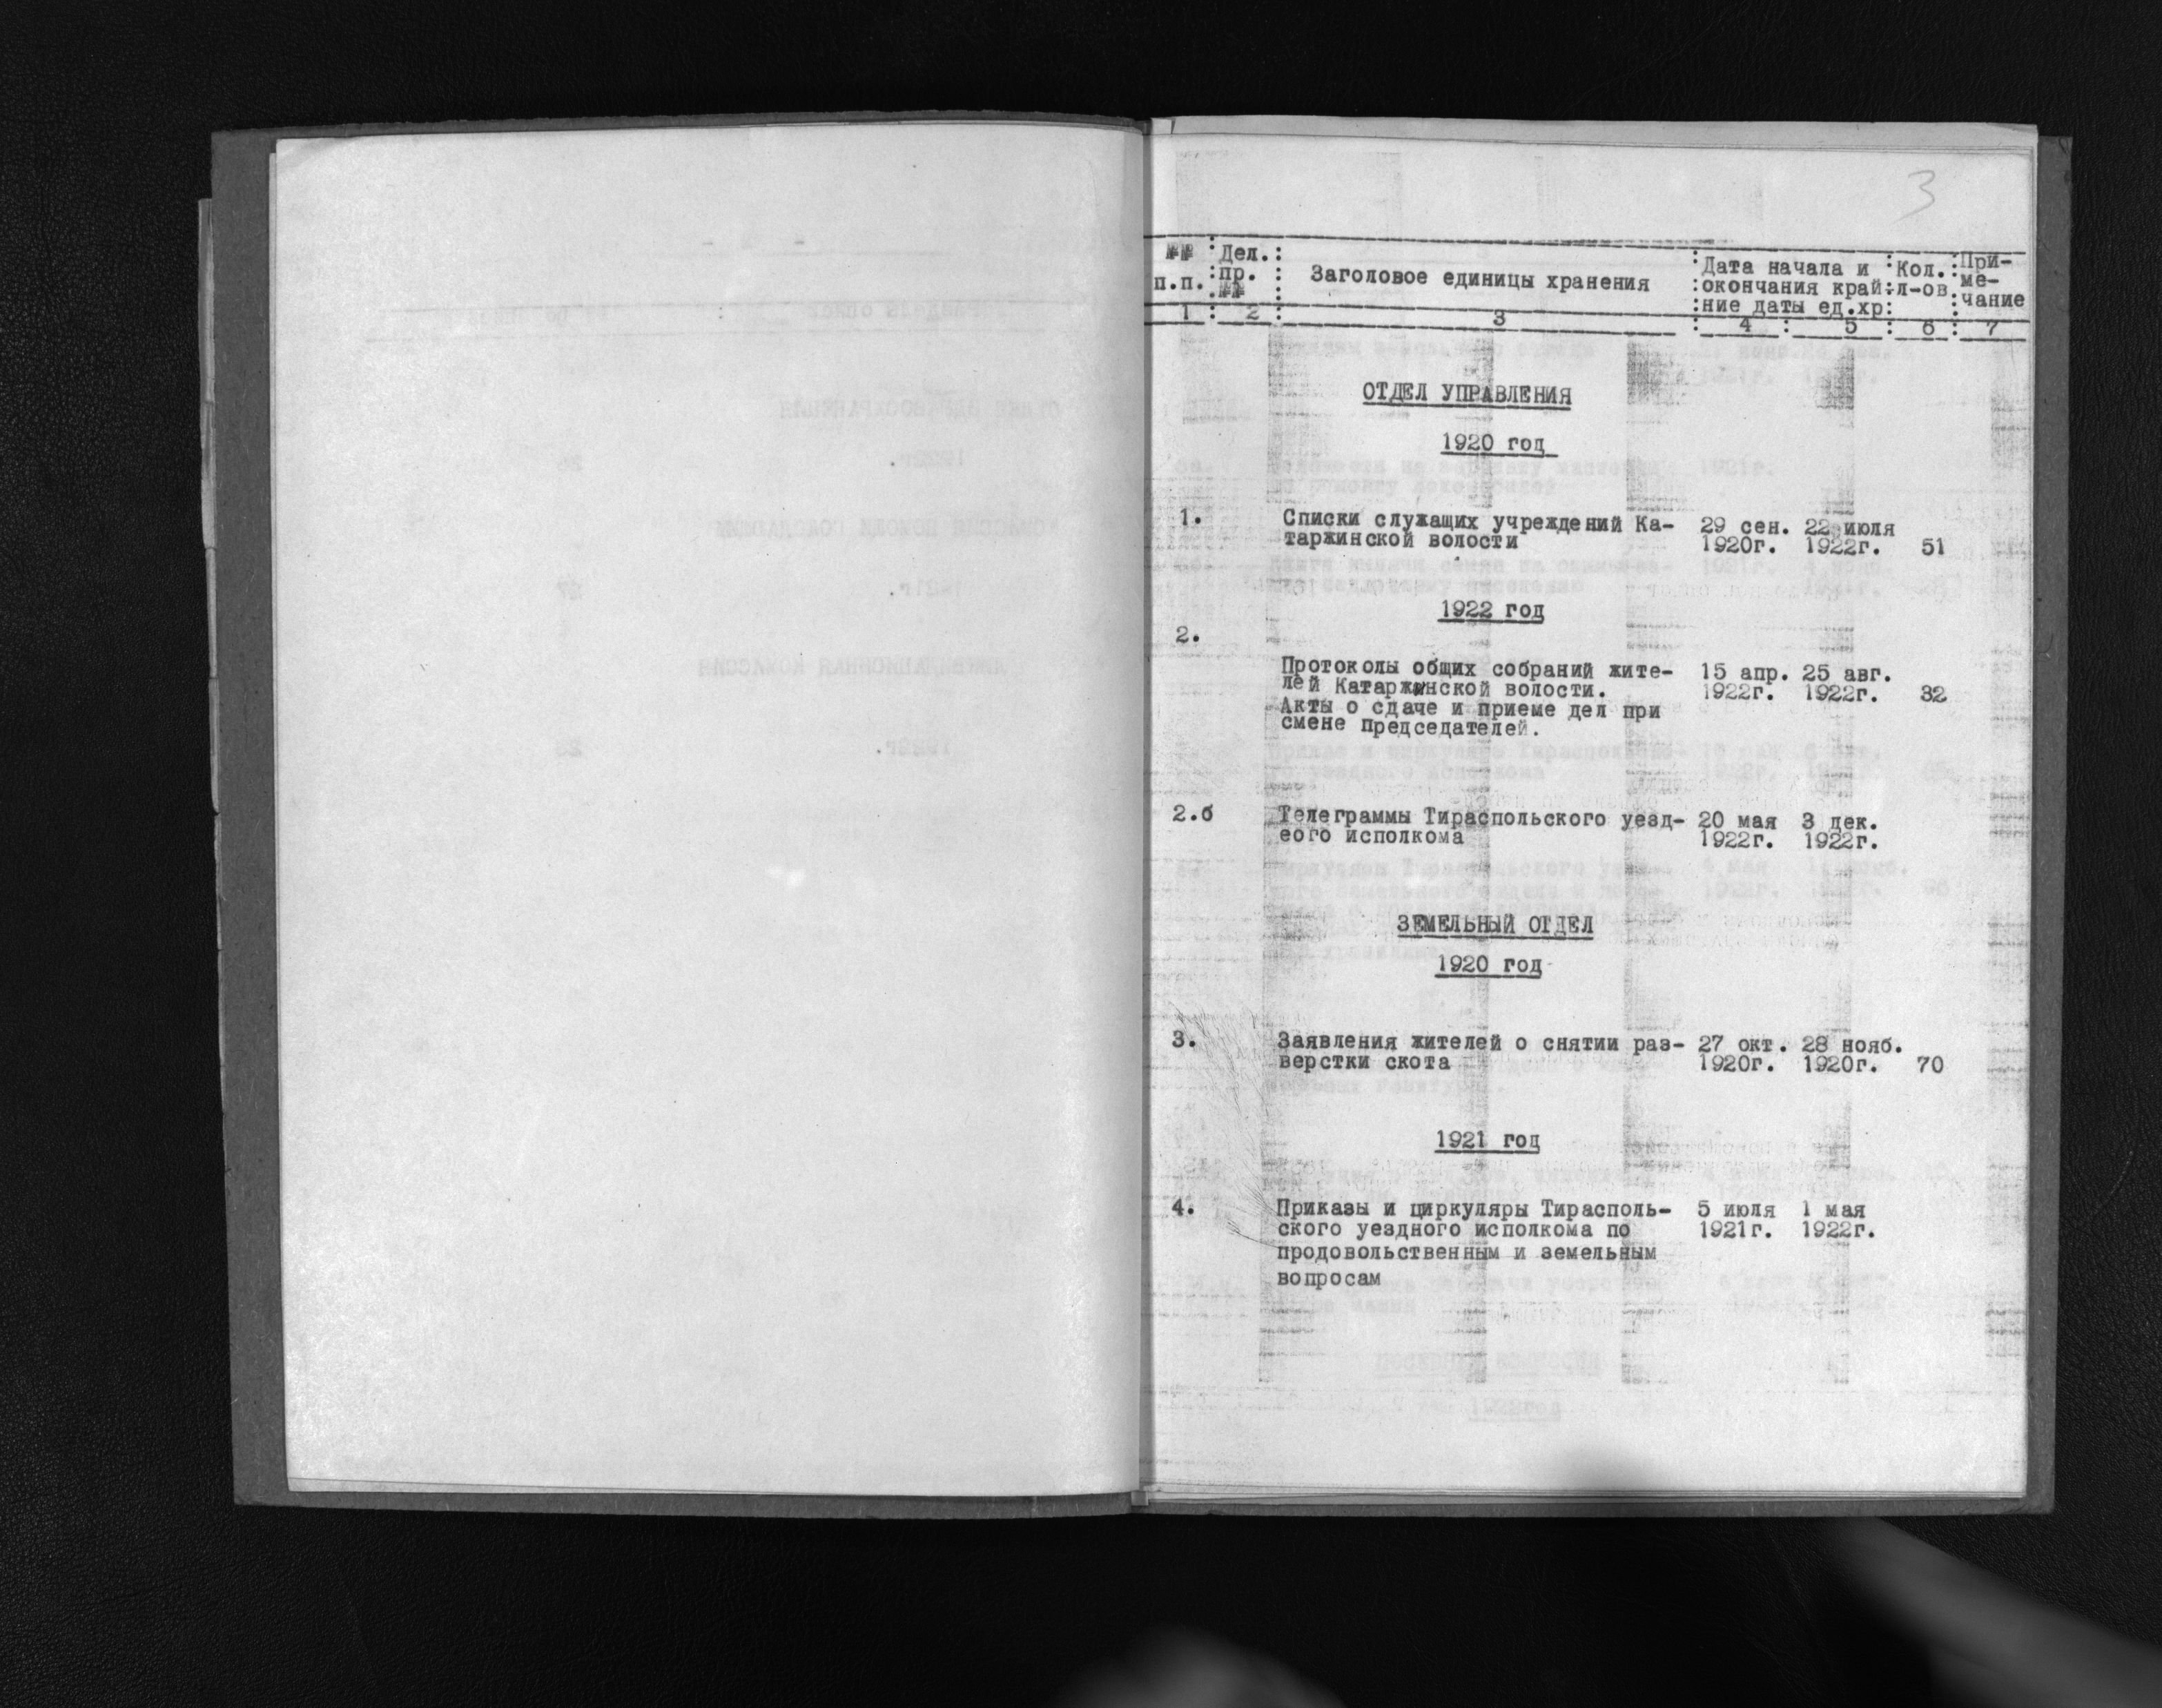 3
№№ : Дел.: : Дата начала и : Кол. : При-
п.п. : пр. : Заголовое единицы хранения : окончания край: л-ов : ме-
№№ : ние даты ед.хр: : чание
1 : 2 : 3 : 4 : 5 : 6 : 7
ОТДЕЛ УПРАВЛЕНИЯ
1920 год
1. Списки служащих учреждений Ка- 29 сен. 22 июля
таржинской волости 1920г. 1922г. 51
1922 год
2.
Протоколы общих собраний жите- 15 апр. 25 авг.
лей Катаржинской волости. 1922г. 1922г. 32
Акты о сдаче и приеме дел при
смене Председателей.
2.б Телеграммы Тираспольского уезд- 20 мая 3 дек.
еого исполкома 1922г. 1922г.
ЗЕМЕЛЬНЫЙ ОТДЕЛ
1920 год
3. Заявления жителей о снятии раз- 27 окт. 28 нояб.
верстки скота 1920г. 1920г. 70
1921 год
4. Приказы и циркуляры Тирасполь- 5 июля 1 мая
ского уездного исполкома по 1921г. 1922г.
продовольственным и земельным
вопросам